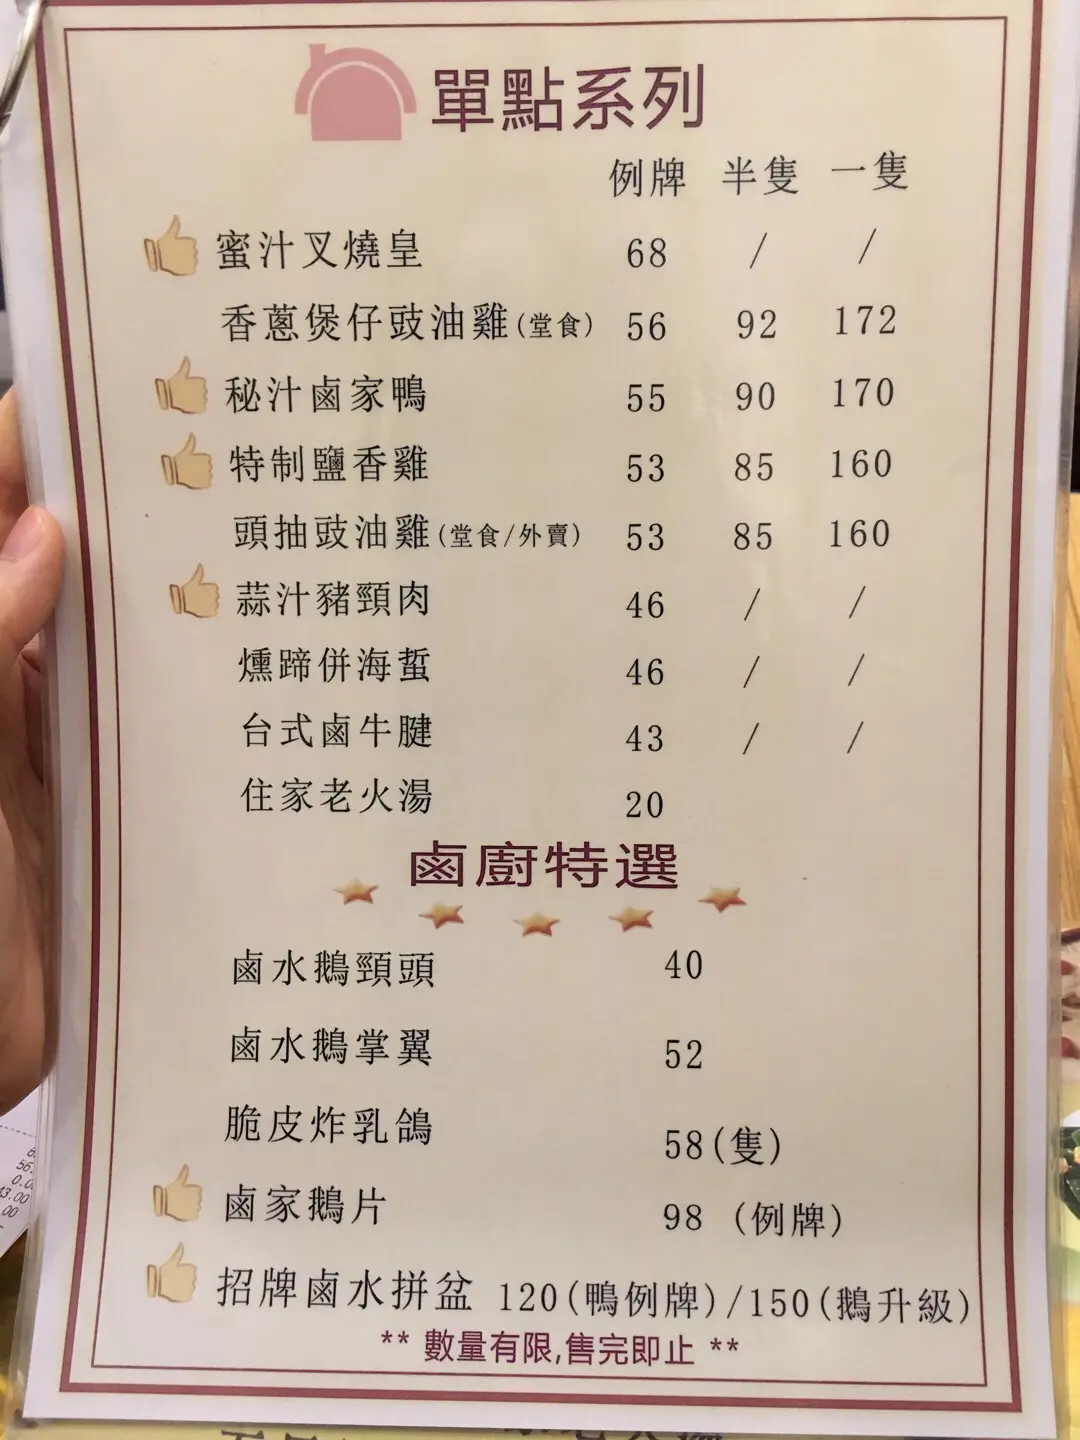 單點系列
例牌 半隻 一隻
蜜汁叉燒皇 68 / /
香蔥煲仔豉油雞(堂食) 56 92 172
秘汁鹵家鴨 55 90 170
特制鹽香雞 53 85 160
頭抽豉油雞(堂食/外賣) 53 85 160
蒜汁豬頸肉 46 / /
燻蹄併海蜇 46 / /
台式鹵牛腱 43 / /
住家老火湯 20
鹵廚特選
鹵水鵝頸頭 40
鹵水鵝掌翼 52
脆皮炸乳鴿 58(隻)
鹵家鵝片 98 (例牌)
招牌鹵水拼盆 120(鴨例牌)/150(鵝升級)
** 數量有限,售完即止 **